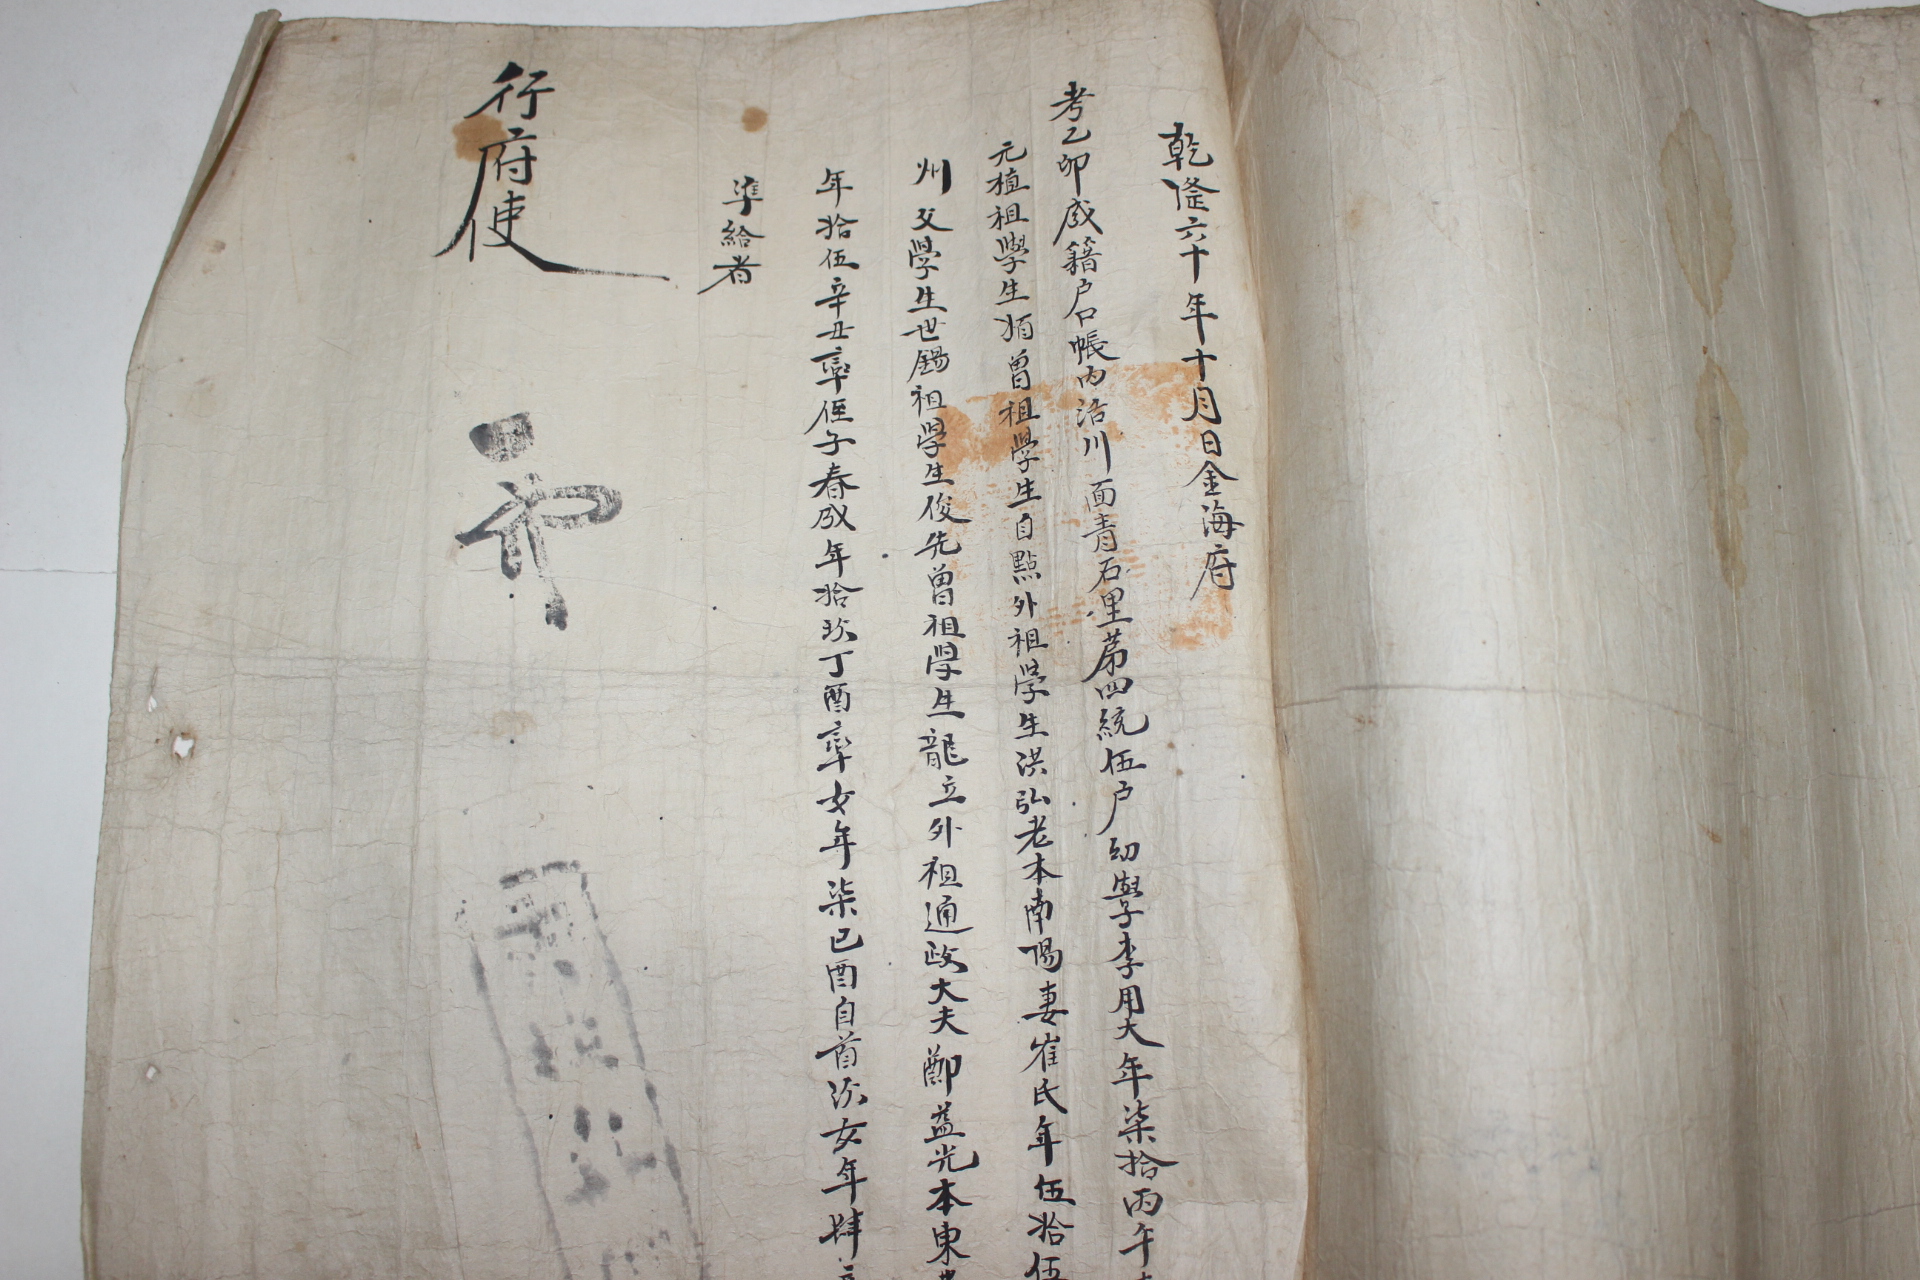 乾隆六十年十月日金海府
考乙卯成籍戶口帳內洽川面青石里第四統伍戶幼學李用大年柒拾丙午
元植祖學生㺵曾祖學生自點外祖學生洪弘老本南陽妻崔氏年伍拾伍
州父學生世錫祖學生俊先曾祖學生龍立外祖通政大夫鄭益光本東
年拾伍辛丑率侄子春成年拾玖丁酉率女年柒己酉自首次女年肆
準給者
行府使